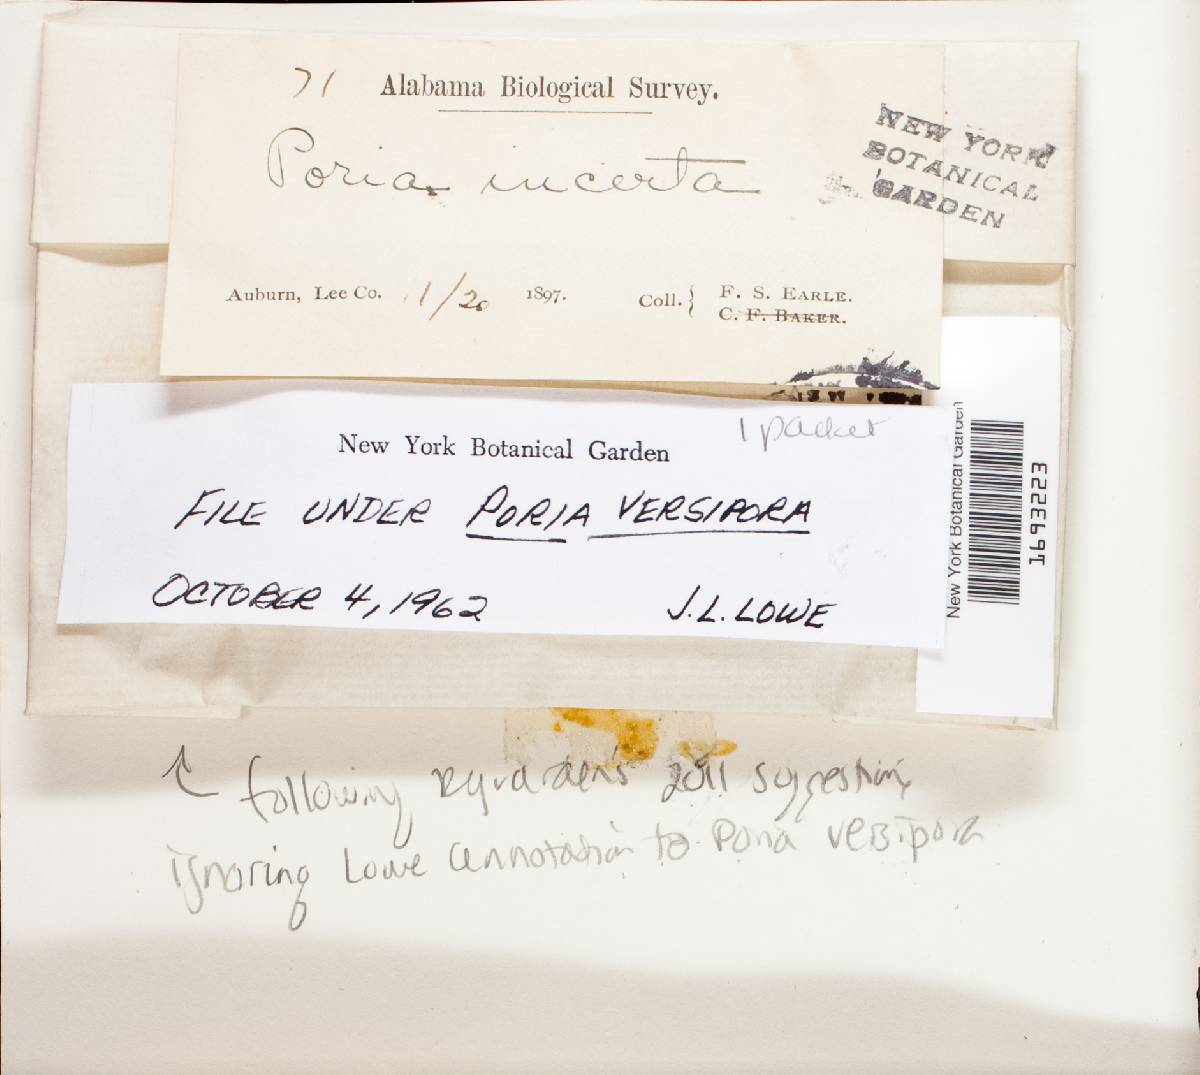 71 Alabama Biological Survey.
Poria incerta
NEW YORK
BOTANICAL
GARDEN
Auburn, Lee Co. 1/20 1897. Coll. { F. S. EARLE.
C. F. BAKER.
1 packet
New York Botanical Garden
FILE UNDER PORIA VERSIPORA
OCTOBER 4, 1962 J. L. LOWE
New York Botanical Garden
1693223
↑ following Ryvarden's 2011 suggestion,
ignoring Lowe annotation to Poria versipora